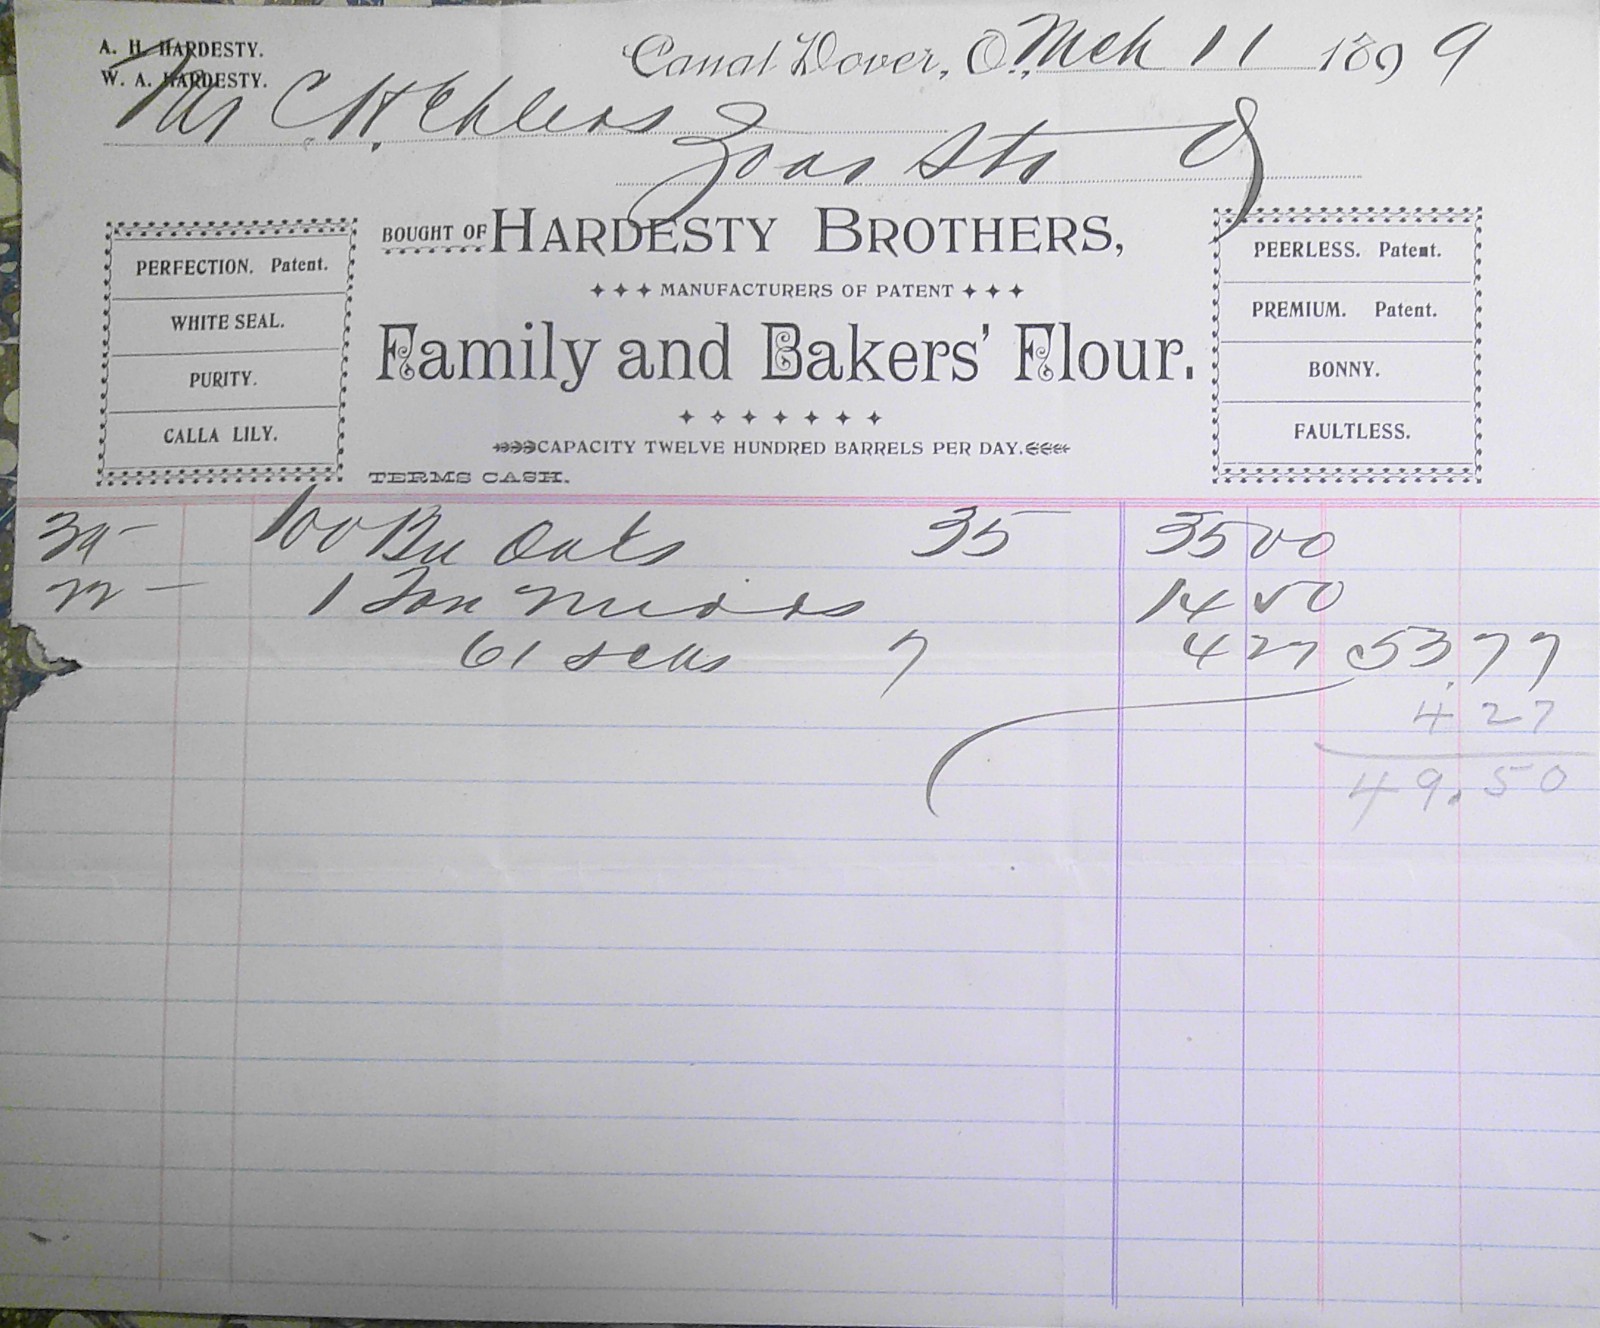 A. H. HARDESTY.
W. A. HARDESTY.
Canal Dover, O., Mch 11 1899
Mr C. H. Ehlers
Zoar Sta O
BOUGHT OF HARDESTY BROTHERS,
MANUFACTURERS OF PATENT
Family and Bakers' Flour.
CAPACITY TWELVE HUNDRED BARRELS PER DAY.
TERMS CASH.
PERFECTION. Patent.
WHITE SEAL.
PURITY.
CALLA LILY.
PEERLESS. Patent.
PREMIUM. Patent.
BONNY.
FAULTLESS.
39 - 100 Bu Oats 35 35 00
22 - 1 Ton Midds 14 50
61 scks 7 4 27 53,77
4 27
49.50